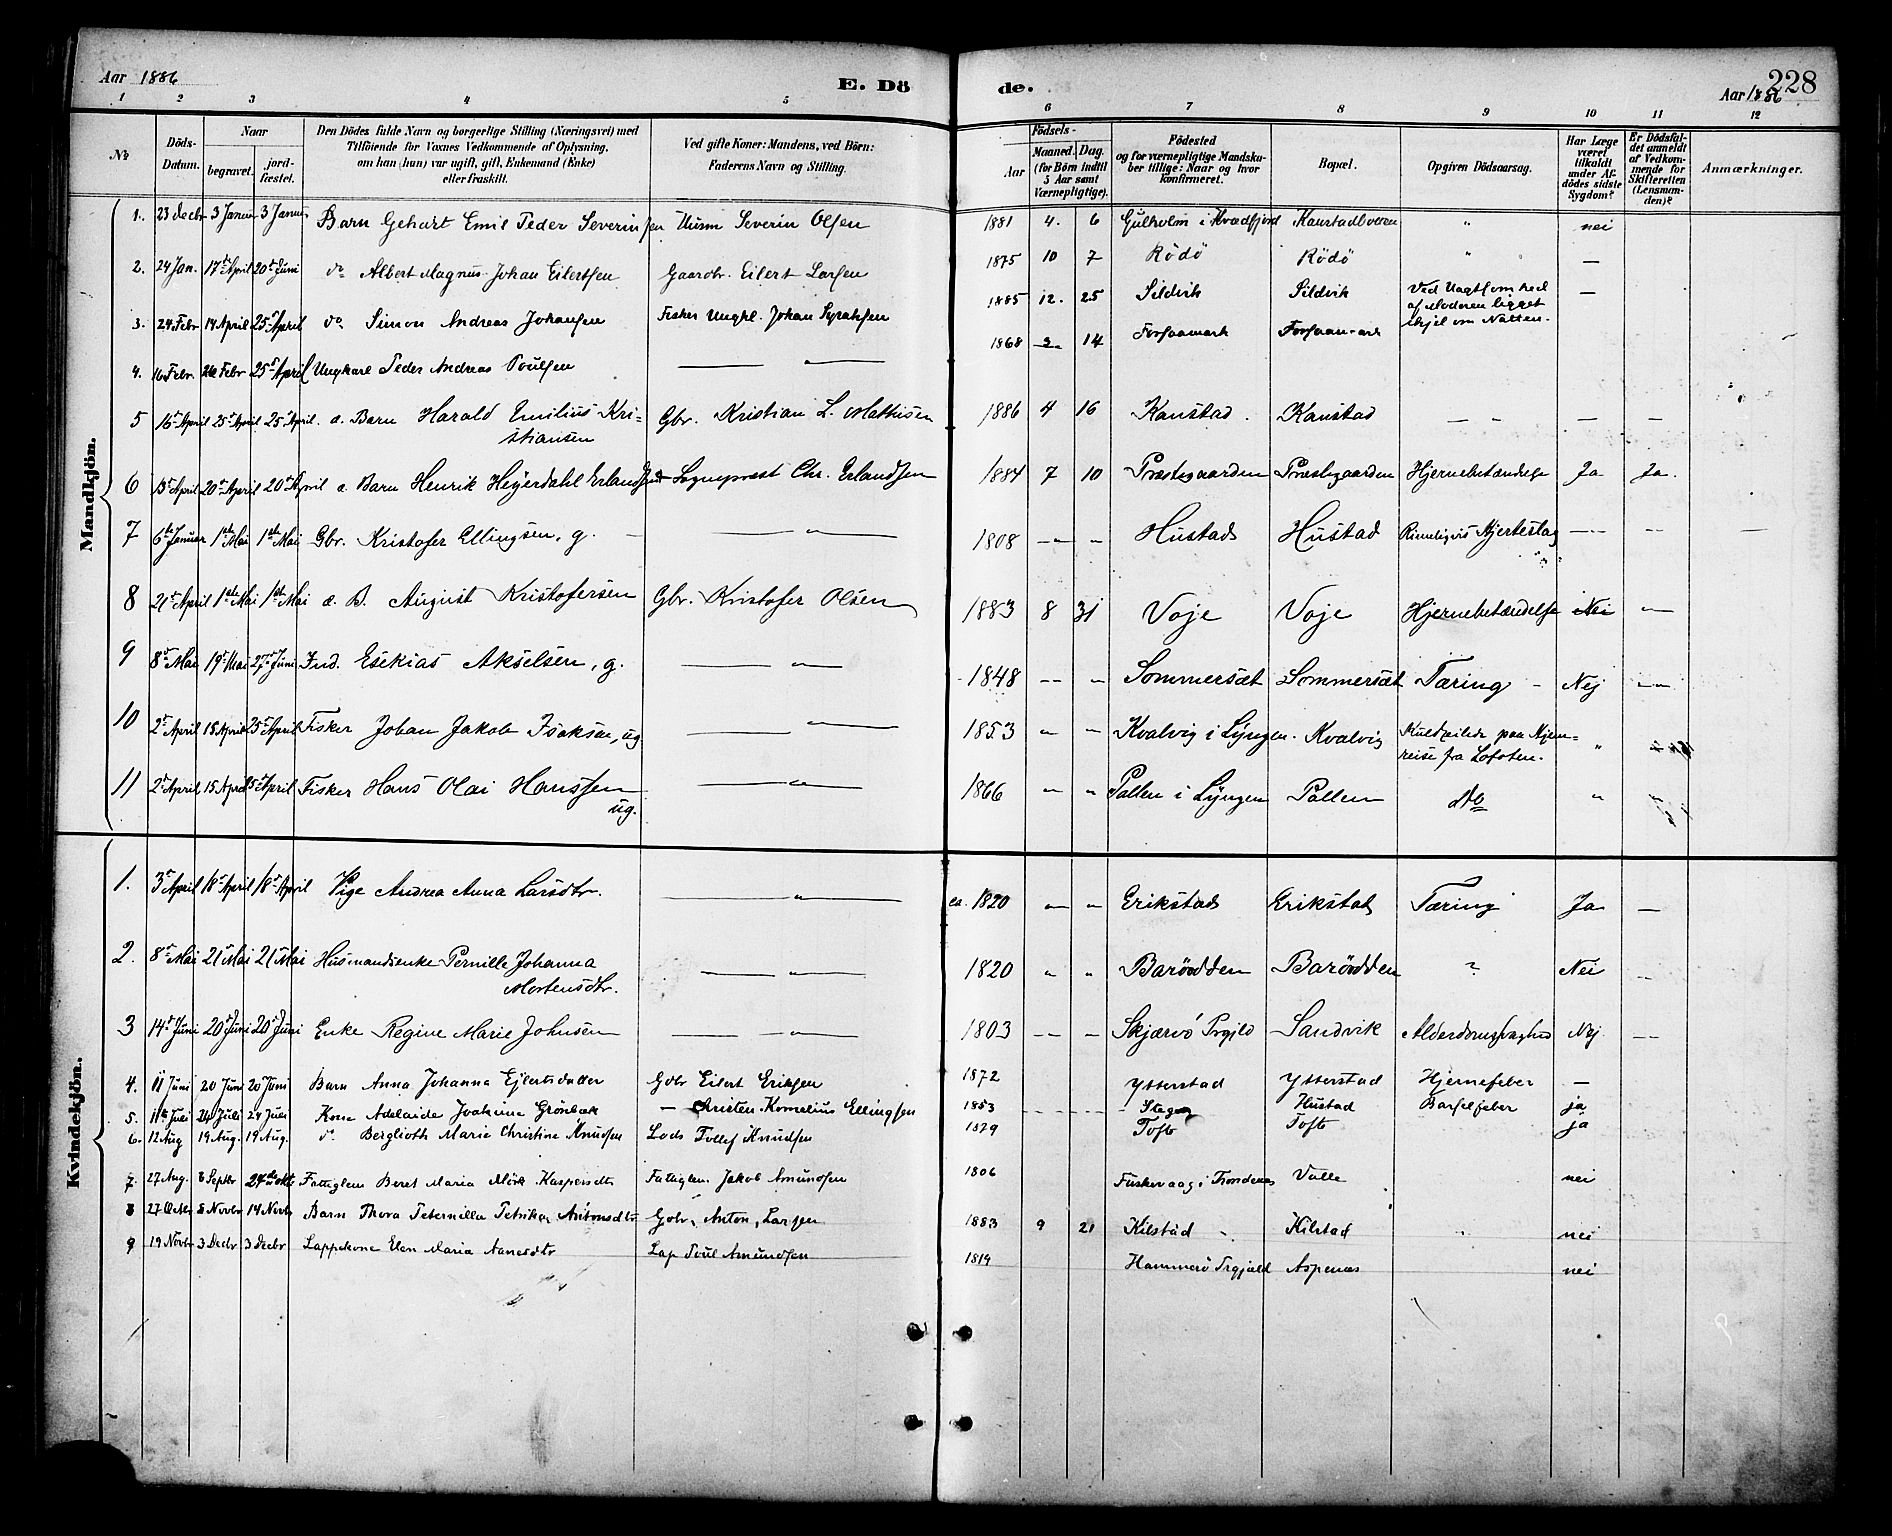 Aar 1886
E. Dö
de.
228
Aar 1886
1 2 3 4 5 6 7 8 9 10 11 12
No
Döds-Datum.
Naar
begravet.
jord-fæstet.
Den Dödes fulde Navn og borgerlige Stilling (Næringsvei) med
Tilföiende for Voxnes Vedkommende af Oplysning,
om han (hun) var ugift, gift, Enkemand (Enke)
eller fraskilt.
Ved gifte Koner: Mandens, ved Börn:
Faderens Navn og Stilling.
Födsels-
Aar
Maaned. Dag.
(for Börn indtil
5 Aar samt
Værnepligtige).
Födested
og for værnepligtige Mandska-
ber tillige: Naar og hvor
konfirmeret.
Bopæl.
Opgiven Dödsaarsag.
Har Læge
været
tilkaldt
under Af-
dödes sidste
Sygdom?
Er Dödsfal-
det anmeldt
af Vedkom-
mende for
Skifteretten
(Lensman-
den)?
Anmærkninger.
Mandkjön.
1. 23 Decbr 3 Januar 3 Januar Barn Gehart Emil Peder Severinsen Husm Severin Olsen 1881 4. 6 Gulholm i Kvædfjord Kanstadbveren " nei
2. 24 Jan. 17de April 20de Juni do Albert Magnus Johan Eilertsen Gaardbr. Eilert Larsen 1875 10 7 Rödö Rödö " —
3. 24 Febr 14 April 25de April do Simon Andreas Johansen Fisker Ungkl. Johan Syrahsen 1885 12. 25 Sildvik Sildvik Ved Uagtsomhed —
af Moderen ligget
ihjel om Natten.
4. 16 Febr. 26 Febr 25de April Ungkarl Peder Andreas Poulsen — " — 1868 14 Forsaamark Forsaamark
5 16de April 25de April 25de April. æ. Barn Harald Emilius Kri-
stiansen Gbr. Kristian L. Mathisen 1886 4 16 Kanstad. Kanstad — — —
6 13de April 20de April 20de April æ Barn Henrik Heyerdahl Erlandsen Sognepræst Chr. Erlandsen 1884 7 10 Præstegaarden Præstegaarden Hjernebetændelse Ja Ja.
7 6te Januar 1ste Mai 1ste Mai Gbr. Kristofer Ellingsen, g. — " — 1808 — — Hustad Hustad Rimeligvis Hjerteslag — — —
8 21de April 1ste Mai 1ste Mai æ. B. August Kristofersen Gbr. Kristofer Olsen 1883 8 31 Voje Voje Hjernebetændelse Nei —
9 8de Mai 19de Mai 27de Juni Ind. Esekias Akselsen, g. — " — 1848 — " Sommersæt Sommersæt Tæring — Nej —
10 2de April 15 April 25de April Fisker Johan Jakob Isaksen, ug — " — 1853 " " Kvalvig i Lyngen. Kvalvig Kuldseilede paa Hjem- "
reise fra Lofoten.
11 2de April 15 April 25de April Fisker Hans Olai Hanssen
ug. — " — 1866 " " Pollen i Lyngen Pollen do "
Kvindekjön.
1. 3de April 18de April 18de April Pige Andrea Anna Larsdtr. — " — ca. 1820 " " Erikstad Erikstad Tæring Ja —
2. 8de Mai 21de Mai 21 Mai Husmandsenke Pernille Johanna
Mortensdtr. — " — 1820 " " Barøodden Barøodden " Nei —
3 14de Juni 20de Juni 20de Juni Enke Regine Marie Johnsen — " — 1803 — — Skjærvö Prgjld Sandvik Alderdomssvaghed Nej. —
4. 11 Juni 20 Juni 20 Juni Barn Anna Johanna Ejlertsdatter Gbr Eilert Eriksen 1872 Ytterstad Ytterstad Hjernefeber —
5. 11te Juli 24 Juli 24 Juli Kone Adelaide Joakime Grönbæk — Christen Kornelius Ellingsen 1853 Hustad Barselfeber ja
6. 12 Aug 19 Aug. 19 Aug. do Berglioth Marie Christine Knudsen Lods Tollef Knudsen 1879 Tofte Tofte ja
7. 27 Aug. 3 Septbr 24de Okt Fattiglem Beret Maria Mörk Kaspersdtr Fattiglem. Jakob Amundsen 1806 Fiskevaag i Trondenes Valle nei
8 27 Octbr 8 Novbr 14 Novbr Barn Thora Peternilla Petrikke Antonsdtr Gbr. Anton Larsen 1883 9 21 Kilstad Kilstad " nei
9 19 Novbr 3 Decbr 3 Decbr Lappekone Elen Maria Aanesdtr Lap Poul Amundsen 1819 Hammerö Prgjæld Aspenæs nei